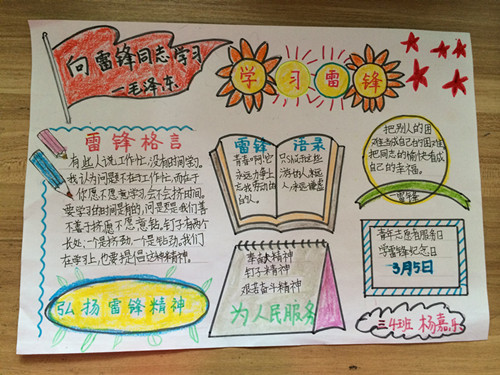 向雷锋同志学习
—毛泽东
学习雷锋
雷锋格言
有些人说工作忙,没有时间学习。
我认为问题不在工作忙,而在于
你愿不愿意学习,会不会挤时间。
要学习的时间是有的,问题是我们善
不善于挤,愿不愿意钻。钉子有两个
长处:一个是挤劲,一个是钻劲。我们
在学习上,也要提倡这种精神
弘扬雷锋精神
雷锋
青春啊,
永远
语录
永远
奉献精神
钉子精神
艰苦奋斗精神
为人民服务
把别人的困
难当成自己的困难
把同志的愉快看成
自己的幸福。
雷锋
青年志愿者服务日
学雷锋纪念日
3月5日
三4班 杨嘉乐